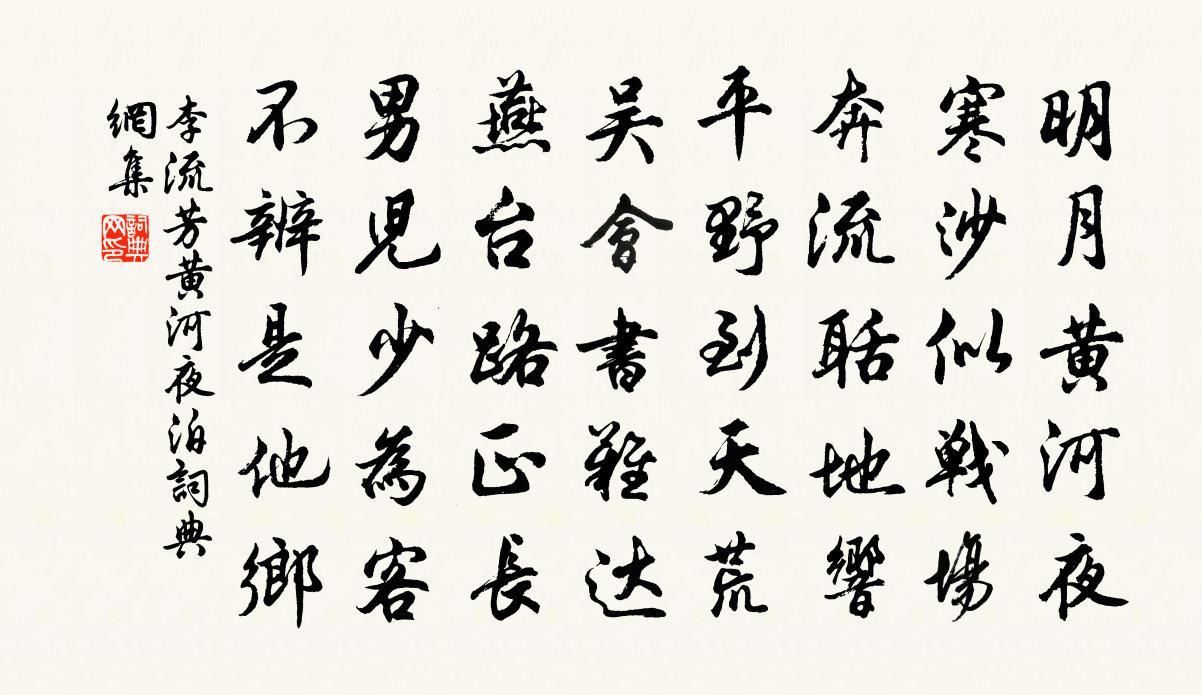 明月黄河夜
寒沙似戰場
奔流聒地響
平野到天荒
吴會書難达
燕台路正長
男児少為客
不辨是他鄉
李流芳黄河夜泊詞典
網集
詞典
网印